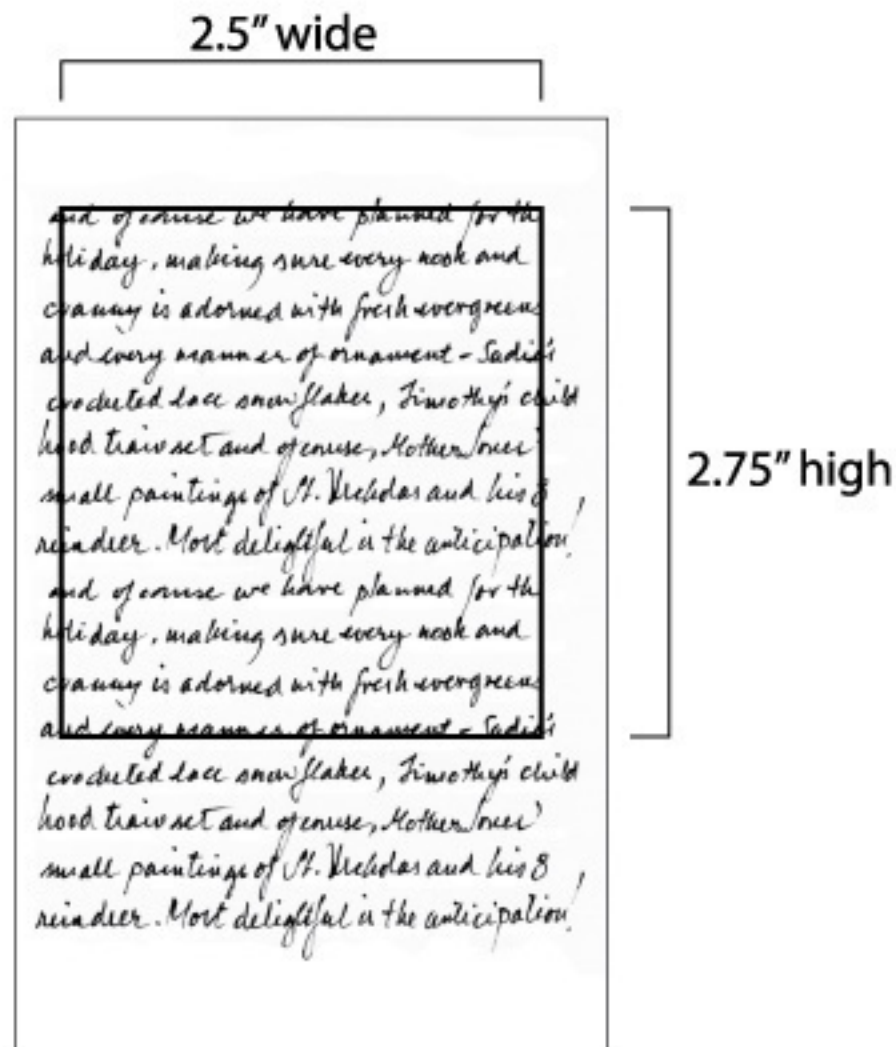 2.5" wide
and of course we have planned for th
holiday, making sure every nook and
cranny is adorned with fresh evergreens
and every manner of ornament - Sadie's
crocheted lace snowflakes, Timothy's child
hood train set and of course, Mother
small paintings of St. Nicholas and his 8
reindeer. Most delightful is the anticipation!
and of course we have planned for th
holiday, making sure every nook and
cranny is adorned with fresh evergreens
and every manner of ornament - Sadie's
crocheted lace snowflakes, Timothy's child
hood train set and of course, Mother
small paintings of St. Nicholas and his 8
reindeer. Most delightful is the anticipation!
2.75" high